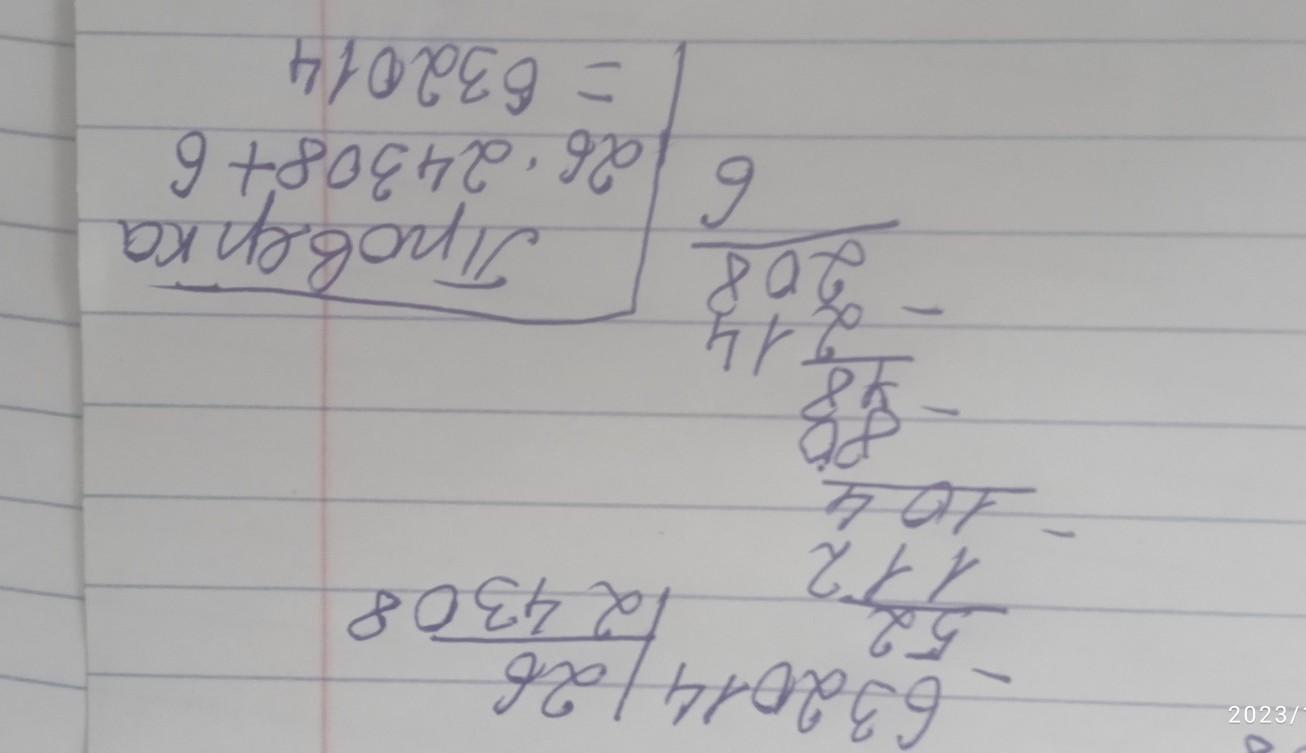 632014 | 26
- 52 | 24308
112
- 104
80
- 78
214
- 208
6
Проверка
26 · 24308 + 6
= 632014
2023/